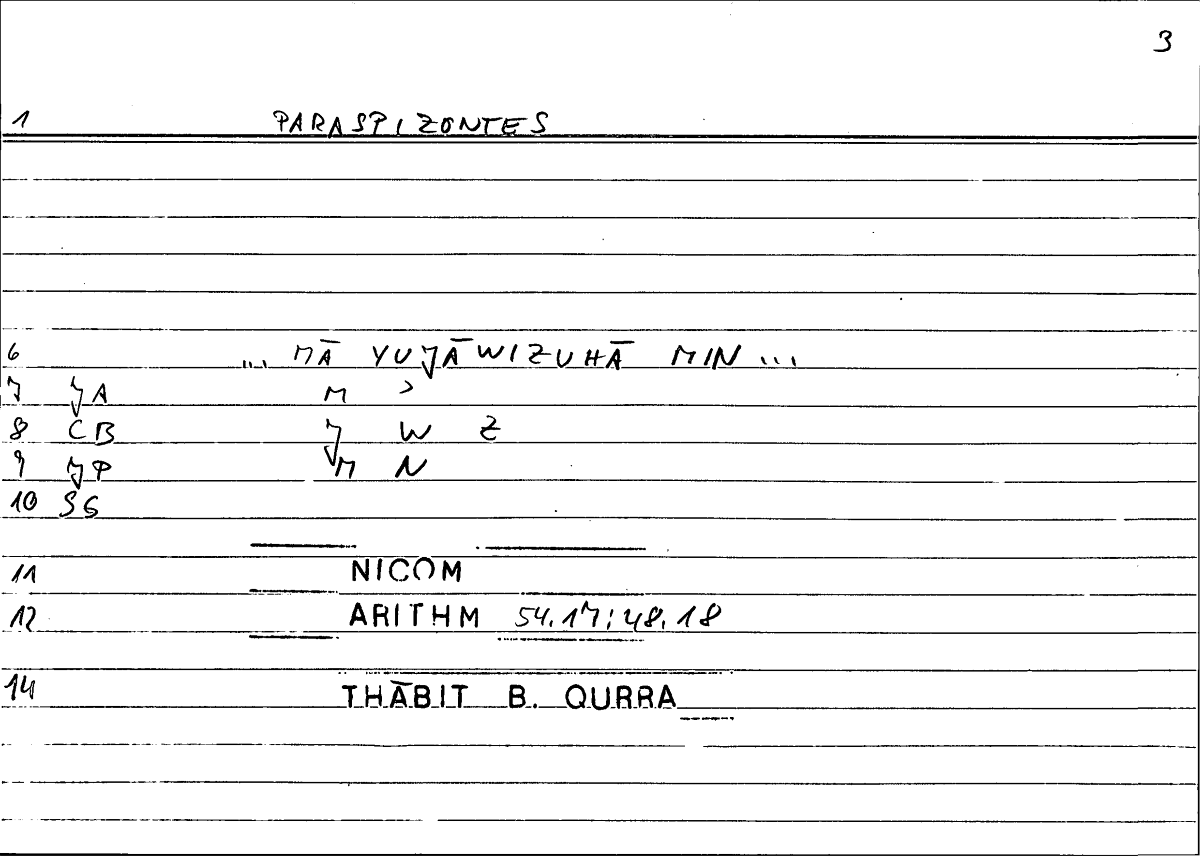 3
1 PARASPIZONTES
6 ... MĀ YUJ̌ĀWIZUHĀ MIN ...
7 J̌A M ʾ
8 CB J̌ W Z
9 J̌P M N
10 SG
11 NICOM
12 ARITHM 54.17; 48.18
14 THĀBIT B. QURRA